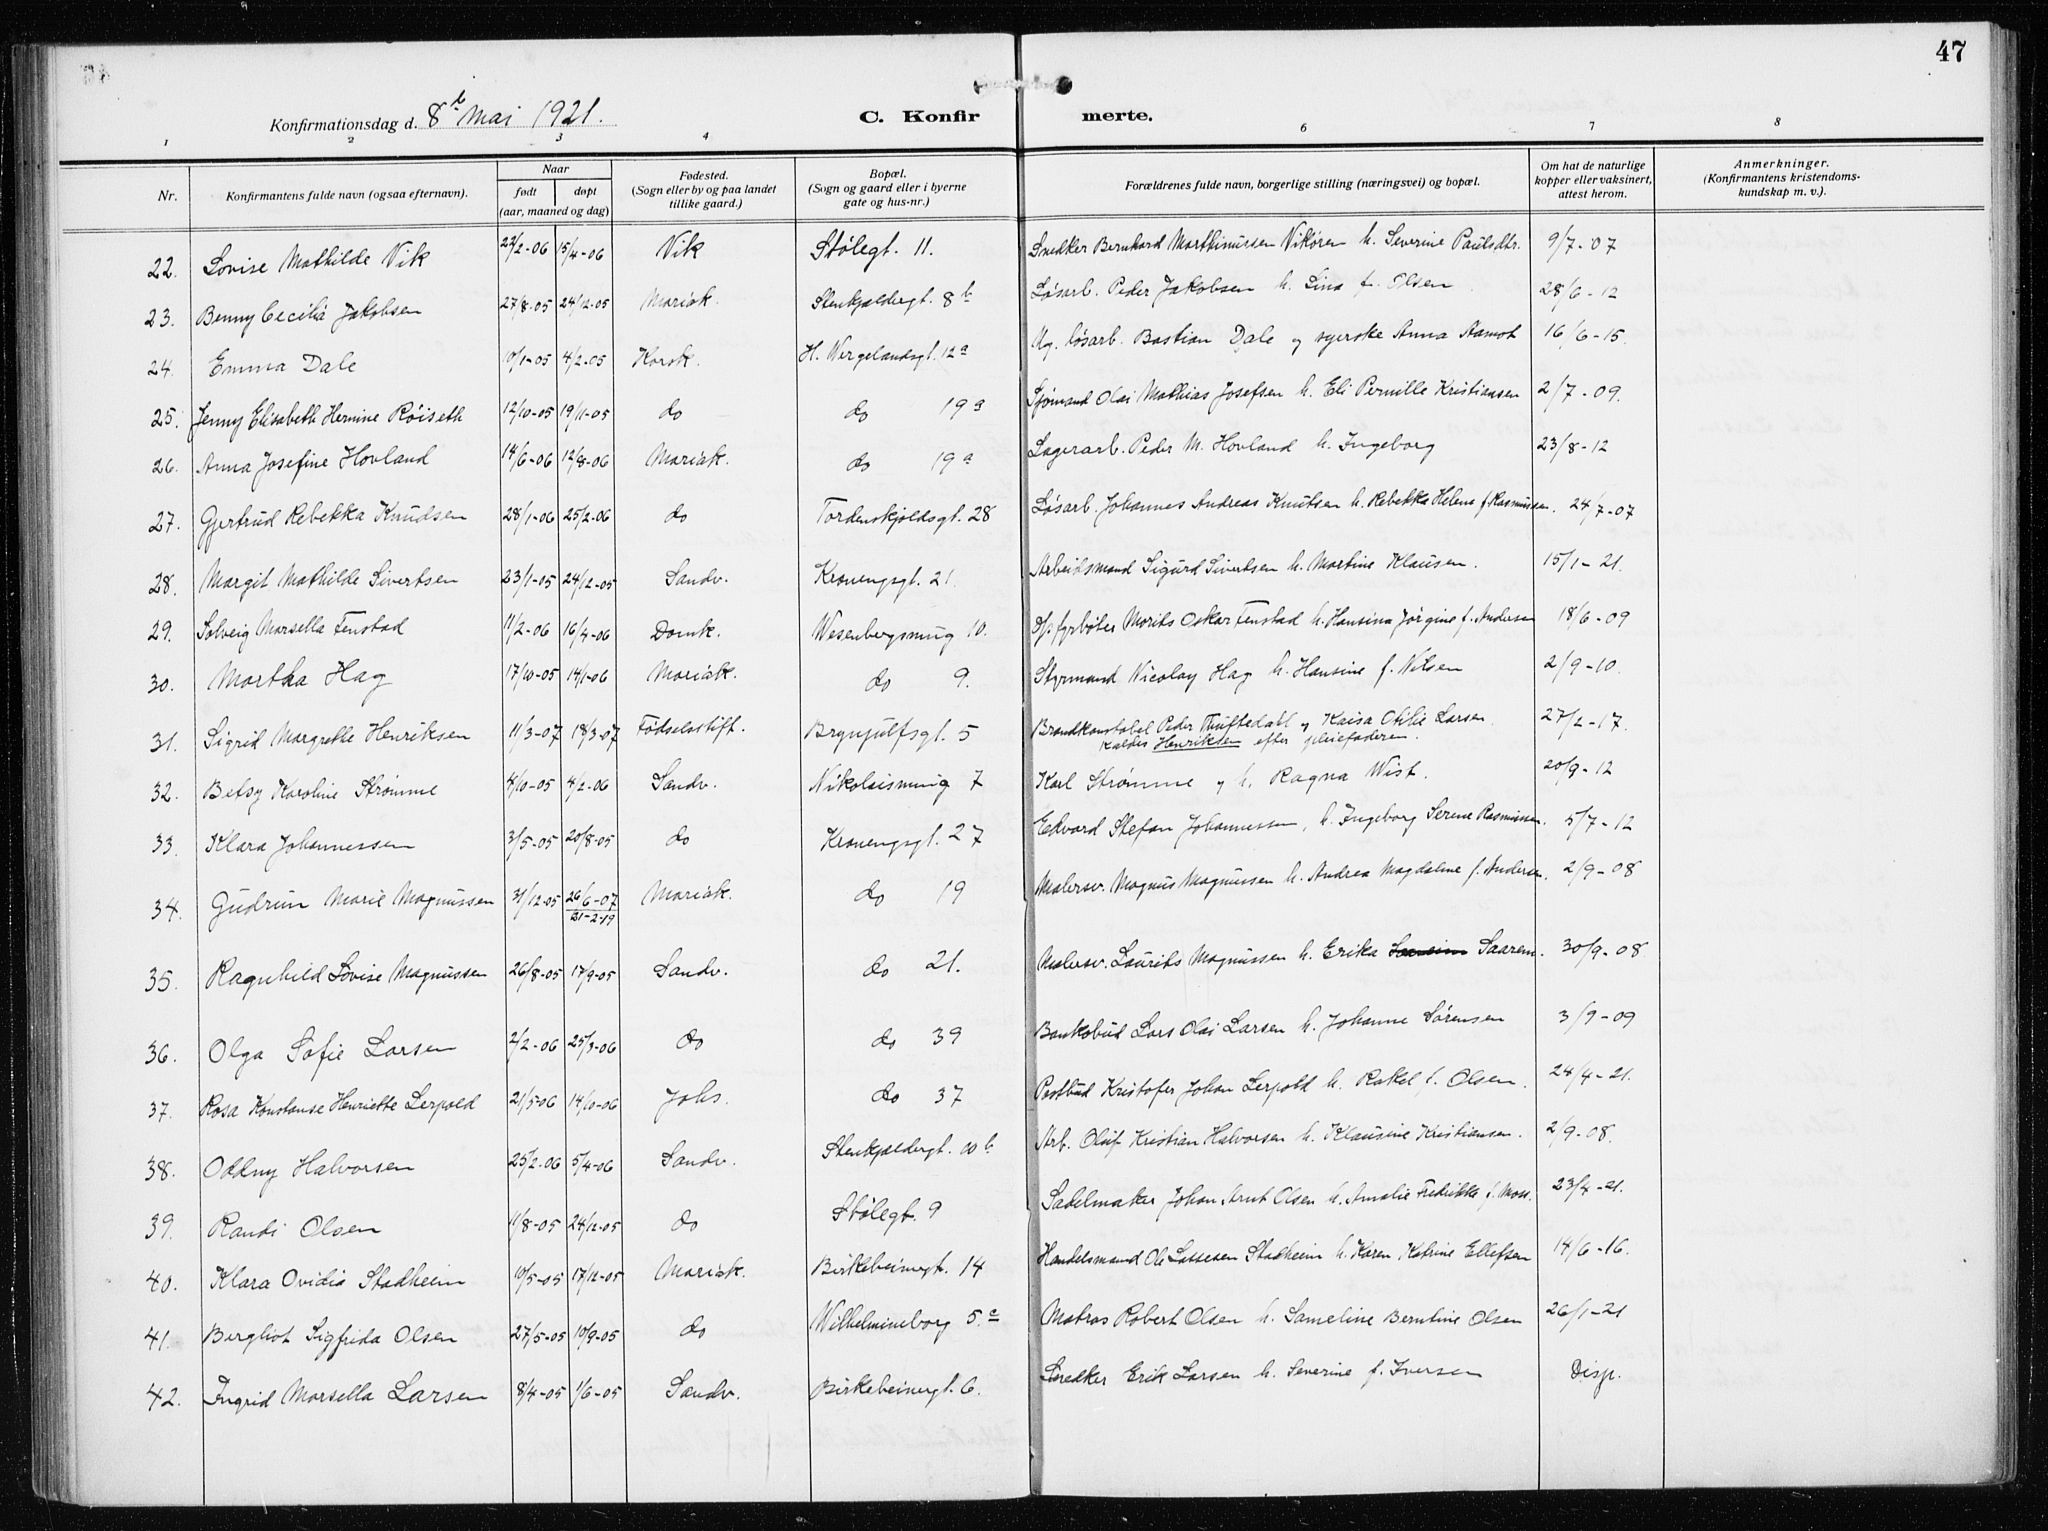 47
Konfirmationsdag d. 8de Mai 1921. C. Konfirmerte.
1 2 3 4 6 7 8
Nr. Konfirmantens fulde navn (ogsaa efternavn). Naar født døpt (aar, maaned og dag) Fødested. (Sogn eller by og paa landet tillike gaard.) Bopæl. (Sogn og gaard eller i byerne gate og hus-nr.) Forældrenes fulde navn, borgerlige stilling (næringsvei) og bopæl. Om hat de naturlige kopper eller vaksinert, attest herom. Anmerkninger. (Konfirmantens kristendomskundskap m. v.).
22. Lovise Mathilde Vik 22/2-06 15/4-06 Vik Stølegt. 11. Snedker Bernhard Marthinussen Vikøren h. Severine Paulsdtr. 9/7-07
23. Benny Cecilia Jakobsen 27/8-05 24/12-05 Mariak. Stenkjeldergt. 8b Løsarb. Peder Jakobsen h. Lina f. Olsen 28/6-12
24. Emma Dale 10/1-05 4/2-05 Korsk. H. Wergelandsgt. 12a Ug. løsarb. Bastian Dale og syerske Anna Aamot 16/6-15.
25. Jenny Elisabeth Hermine Røiseth 12/10-05 19/11-05 do do 19a Sjømand Olai Mathias Josefsen h. Eli Pernille Kristiansen 2/7-09.
26. Anna Josefine Hovland 14/6-06 12/8-06 Mariak. do 19a Lagerarb. Peder M. Hovland h. Ingeborg 23/8-12
27. Gjertrud Rebekka Knudsen 28/1-06 25/2-06 do Tordenskjoldsgt. 28 Løsarb. Johannes Andreas Knutsen h. Rebekka Helene f. Rasmussen. 24/7-07
28. Margit Mathilde Sivertsen 23/1-05 24/12-05 Sandv. Kronengsgt. 21. Arbeidsmand Sigurd Sivertsen h. Martine Klausen. 15/1-21.
29. Solveig Marsella Fenstad 11/2-06 16/4-06 Domk. Wesenbergsmug 10. D/p. fyrbøter Morits Oskar Fenstad h. Hansina Jørgine f. Andersen 18/6-09
30. Martha Hag 17/10-05 14/1-06 Mariak. do 9. Styrmand Nicolay Hag h. Hansine f. Nilsen 2/9-10.
31. Sigrid Margrethe Henriksen 11/3-07 18/3-07 Fødselsstift. Brynjulfsgt. 5 Brandkonstabel Peder Thuftedal og Kaisa Otilie Larsen. 27/2-17.
kaldes Henriksen efter pleiefaderen.
32. Betsy Karoline Strømme 4/10-05 4/2-06 Sandv. Nikolaismug 7 Karl Strømme og h. Ragna Wist. 20/9-12
33. Klara Johannessen 3/5-05 20/8-05 do Kronengsgt. 27 Edvard Stefan Johannessen, h. Ingeborg Serene Rasmussen. 5/7-12
34. Gudrun Marie Magnussen 31/12-05 26/6-07 Mariak. do 19 Malersv. Magnus Magnussen h. Andrea Magdalene f. Andersen. 2/9-08
21-2-19
35. Ragnhild Lovise Magnussen 26/8-05 17/9-05 Sandv. do 21. Malersv. Laurits Magnussen h. Erika Saarem. 30/9-08
36. Olga Sofie Larsen 2/2-06 25/3-06 do do 39 Banksbud Lars Olai Larsen h. Johanne Sørensen 3/9-09
37. Rosa Konstanse Henriette Lerpold 21/5-06 14/10-06 Johs. do 37 Postbud Kristofer Johan Lerpold h. Rakel f. Olsen. 24/4-21.
38. Oddny Halvorsen 25/2-06 5/4-06 Sandv. Stenkjeldergt. 10b Arb. Oluf Kristian Halvorsen h. Klausine Kristiansen. 2/9-08.
39. Randi Olsen 11/8-05 24/12-05 do Stølegt. 9 Sadelmaker Johan Arnt Olsen h. Amalie Fredrikke f. Moss. 23/4-21.
40. Klara Ovidia Stadheim 10/5-05 17/12-05 Mariak. Birkebeinergt. 14 Handelsmand Ole Lassesen Stadheim h. Karen Katrine Ellefsen 14/6-16.
41. Bergliot Sigfrida Olsen 27/5-05 10/9-05 do Wilhelmineborg 5.a Matros Robert Olsen h. Sameline Berntine Olsen 26/1-21
42. Ingrid Marsella Larsen 8/4-05 1/6-05 Sandv. Birkebeinergt. 6. Snedker Erik Larsen h. Severine f. Iversen Disp.